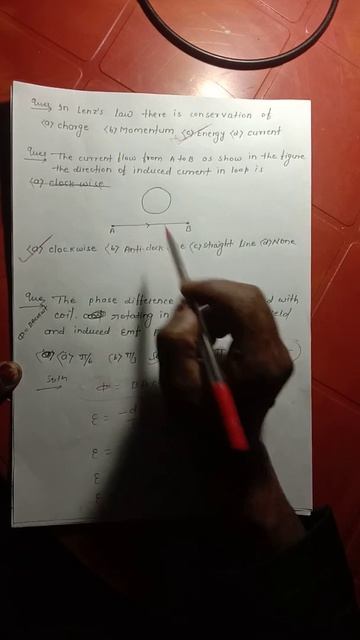 Ques In Lenz's law there is conservation of
(a) charge (b) Momentum (c) Energy (d) current
Ques The current flow from A to B as show in the figure
the direction of induced current in loop is
(a) clock wise
A B
(a) clockwise (b) Anticlock (c) straight line (d) None
Ques The phase difference with
coil. rotating in
and induced Emf
(a) π/6 (b) π/3
Soln Φ = BA
ε = -d
ε =
ε
ε